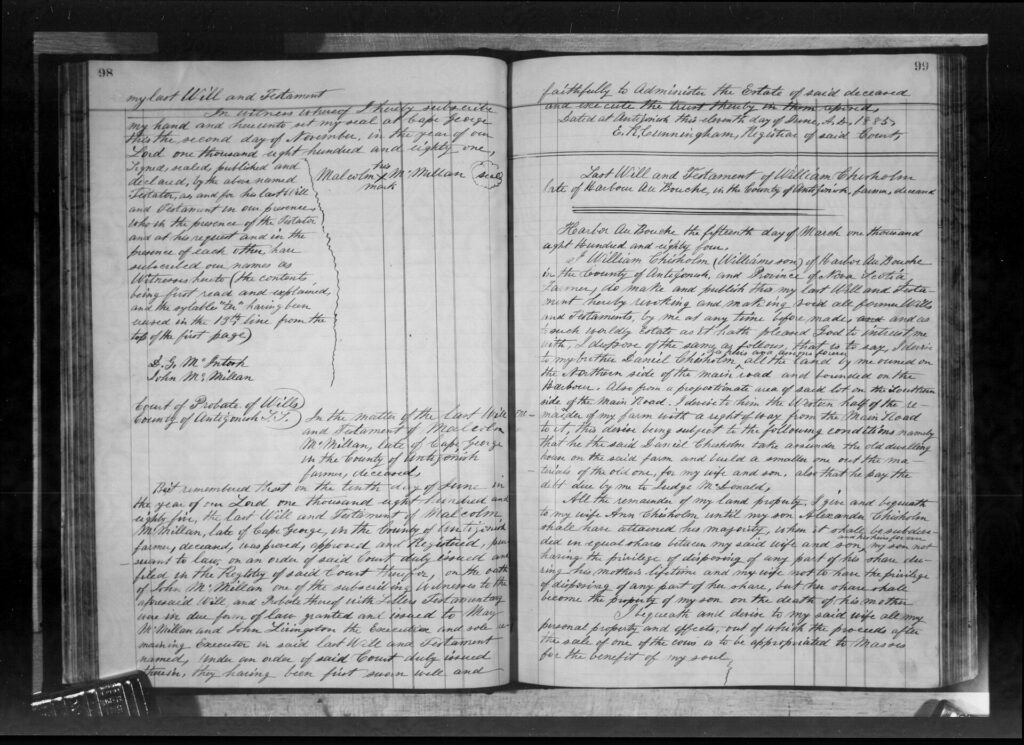 98
my last Will and Testament
In witness whereof I hereby subscribe
my hand and hereunto set my seal at Cape George
this the second day of November, in the year of our
Lord one thousand eight hundred and eighty one,
Signed, sealed, published and
declared, by the above named
Testator, as and for his last Will
and Testament in our presence
who in the presence of the Testator
and at his request and in the
presence of each other have
subscribed our names as
Witnesses hereto (the contents
being first read and explained,
and the sylable "Ex" having been
in the 13th line from the
top of the first page)
his
Malcolm X McMillan seal
mark
D. G. McIntosh
John McMillan
Court of Probate of Wills
County of Antigonish S.S.
In the matter of the last Will
and Testament of Malcolm
McMillan, late of Cape George
in the County of Antigonish
farmer, deceased,
Be it remembered that on the tenth day of June in
the year of our Lord one thousand eight hundred and
eighty five, the last Will and Testament of Malcolm
McMillan, late of Cape George, in the County of Antigonish
farmer, deceased, was proved, approved and Registered, pur-
suant to law, on an order of said Court duly issued and
filed in the Registry of said Court therefor, on the oath
of John McMillan one of the subscribing Witnesses to the
aforesaid Will, and Probate thereof with Letters Testamentary
were in due form of law granted and issued to Mary
McMillan and John Livingston the Executrix and sole re-
maining Executor in said last Will and Testament
named, under an order of said Court duly issued
therein, they having been first sworn well and
99
faithfully to Administer the Estate of said deceased
and execute the trust thereby in them reposed,
Dated at Antigonish this eleventh day of June, A.D. 1885,
E. R. Cunningham, Registrar of said Court,
Last Will and Testament of William Chisholm
late of Harbour Au Bouche, in the County of Antigonish, farmer, deceased
Harbor Au Bouche the fifteenth day of March one thousand
eight hundred and eighty four.
I William Chisholm (Williams son) of Harbor Au Bouche
in the County of Antigonish, and Province of Nova Scotia,
Farmer, do make and publish this my last Will and Testa-
ment hereby revoking and making void all former Wills
and Testaments, by me at any time before made, and as to
such worldly Estate as it hath pleased God to intrust me
with, I dispose of the same as follows, that is to say, I devise
to my brother Daniel Chisholm, his heirs and assigns forever all the land by me owned on
the Northern side of the main road and bounded on the
Harbour. Also from a proportionate area of said lot on the Southern
side of the Main Road. I devise to him the Western half of the re-
mainder of my farm with a right of way from the Main Road
to it, this devise being subject to the following conditions namely
that he the said Daniel Chisholm take assunder the old dwelling
house on the said farm and build a smaller one out the ma-
terials of the old one, for my wife and son, also that he pay the
debt due by me to Judge McDonald,
All the remainder of my land property I give and bequeath
to my wife Ann Chisholm until my son Alexander Chisholm
shall have attained his majority, when it shall be subdivi-
ded in equal shares between my said wife and son, and his heirs forever my son not
having the privilege of disposing of any part of his share du-
ring his mother's lifetime and my wife not to have the privilege
of disposing of any part of her share, but her share shall
become the property of my son on the death of his mother
I bequeath and devise to my said wife all my
personal property and effects, out of which the proceeds after
the sale of one of the cows is to be appropriated to Masses
for the benefit of my soul,